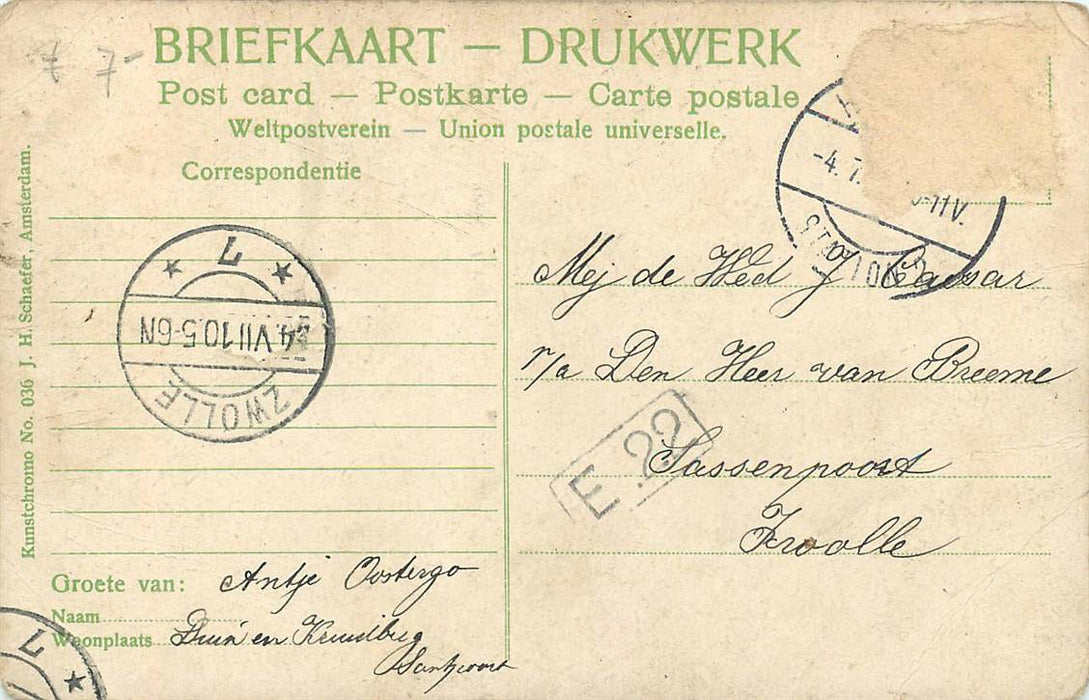 7 7-
BRIEFKAART — DRUKWERK
Post card — Postkarte — Carte postale
Weltpostverein — Union postale universelle.
Correspondentie
-4. 7. -11V.
STATION
7
4.VII.10.5-6N
ZWOLLE
Mej de Wed J Caesar
p/a Den Heer van Breeme
E.22
Sassenpoort
Zwolle
Groete van: Antje Oostergo
Naam
Woonplaats Duin en Kruidberg
Santpoort
7
Kunstchromo No. 036 J. H. Schaefer, Amsterdam.